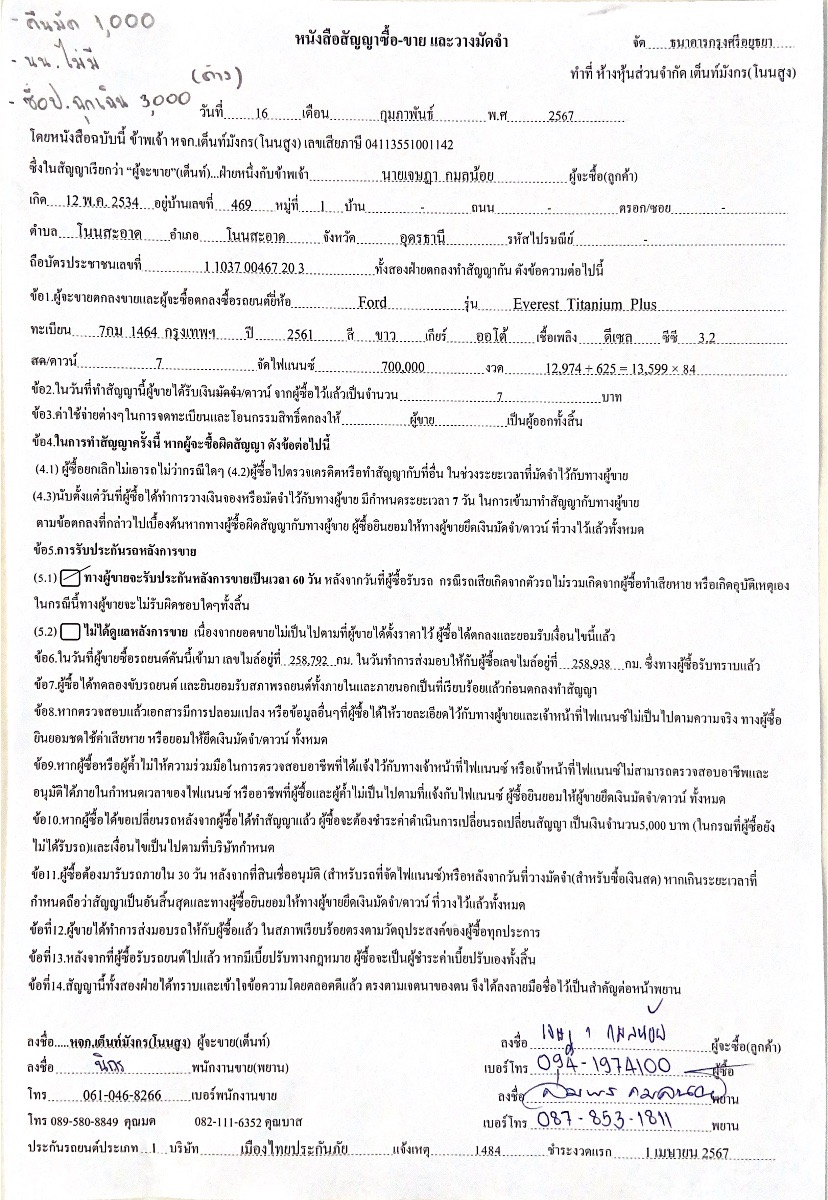 - คืนมัด 1,000
- นน.ไม่มี
(ค้าง)
- ช็อป.ฉุกเฉิน 3,000
หนังสือสัญญาซื้อ-ขาย และวางมัดจำ
จัด ธนาคารกรุงศรีอยุธยา
ทำที่ ห้างหุ้นส่วนจำกัด เต็นท์มังกร(โนนสูง)
วันที่ 16 เดือน กุมภาพันธ์ พ.ศ 2567
โดยหนังสือฉบับนี้ ข้าพเจ้า หจก.เต็นท์มังกร(โนนสูง) เลขเสียภาษี 04113551001142
ซึ่งในสัญญาเรียกว่า "ผู้จะขาย"(เต็นท์)...ฝ่ายหนึ่งกับข้าพเจ้า นายเจษฎา กมลน้อย ผู้จะซื้อ(ลูกค้า)
เกิด 12 พ.ค. 2534 อยู่บ้านเลขที่ 469 หมู่ที่ 1 บ้าน - ถนน - ตรอก/ซอย -
ตำบล โนนสะอาด อำเภอ โนนสะอาด จังหวัด อุดรธานี รหัสไปรษณีย์ -
ถือบัตรประชาชนเลขที่ 1 1037 00467 20 3 ทั้งสองฝ่ายตกลงทำสัญญากัน ดังข้อความต่อไปนี้
ข้อ1.ผู้จะขายตกลงขายและผู้จะซื้อตกลงซื้อรถยนต์ยี่ห้อ Ford รุ่น Everest Titanium Plus
ทะเบียน 7กม 1464 กรุงเทพฯ ปี 2561 สี ขาว เกียร์ ออโต้ เชื้อเพลิง ดีเซล ซีซี 3.2
สด/ดาวน์ 7 จัดไฟแนนซ์ 700,000 งวด 12,974 + 625 = 13,599 × 84
ข้อ2.ในวันที่ทำสัญญานี้ผู้ขายได้รับเงินมัดจำ/ดาวน์ จากผู้ซื้อไว้แล้วเป็นจำนวน 7 บาท
ข้อ3.ค่าใช้จ่ายต่างๆในการจดทะเบียนและโอนกรรมสิทธิ์ตกลงให้ ผู้ขาย เป็นผู้ออกทั้งสิ้น
ข้อ4.ในการทำสัญญาครั้งนี้ หากผู้จะซื้อผิดสัญญา ดังข้อต่อไปนี้
(4.1) ผู้ซื้อยกเลิกไม่เอารถไม่ว่ากรณีใดๆ (4.2)ผู้ซื้อไปตรวจเครดิตหรือทำสัญญากับที่อื่น ในช่วงระยะเวลาที่มัดจำไว้กับทางผู้ขาย
(4.3)นับตั้งแต่วันที่ผู้ซื้อได้ทำการวางเงินจองหรือมัดจำไว้กับทางผู้ขาย มีกำหนดระยะเวลา 7 วัน ในการเข้ามาทำสัญญากับทางผู้ขาย
ตามข้อตกลงที่กล่าวไปเบื้องต้นหากทางผู้ซื้อผิดสัญญากับทางผู้ขาย ผู้ซื้อยินยอมให้ทางผู้ขายยึดเงินมัดจำ/ดาวน์ ที่วางไว้แล้วทั้งหมด
ข้อ5.การรับประกันรถหลังการขาย
(5.1) ทางผู้ขายจะรับประกันหลังการขายเป็นเวลา 60 วัน หลังจากวันที่ผู้ซื้อรับรถ กรณีรถเสียเกิดจากตัวรถไม่รวมเกิดจากผู้ซื้อทำเสียหาย หรือเกิดอุบัติเหตุเอง
ในกรณีนี้ทางผู้ขายจะไม่รับผิดชอบใดๆทั้งสิ้น
(5.2) ไม่ได้ดูแลหลังการขาย เนื่องจากยอดขายไม่เป็นไปตามที่ผู้ขายได้ตั้งราคาไว้ ผู้ซื้อได้ตกลงและยอมรับเงื่อนไขนี้แล้ว
ข้อ6.ในวันที่ผู้ขายซื้อรถยนต์คันนี้เข้ามา เลขไมล์อยู่ที่ 258,792 กม. ในวันทำการส่งมอบให้กับผู้ซื้อเลขไมล์อยู่ที่ 258,938 กม. ซึ่งทางผู้ซื้อรับทราบแล้ว
ข้อ7.ผู้ซื้อได้ทดลองขับรถยนต์ และยินยอมรับสภาพรถยนต์ทั้งภายในและภายนอกเป็นที่เรียบร้อยแล้วก่อนตกลงทำสัญญา
ข้อ8.หากตรวจสอบแล้วเอกสารมีการปลอมแปลง หรือข้อมูลอื่นๆที่ผู้ซื้อได้ให้รายละเอียดไว้กับทางผู้ขายและเจ้าหน้าที่ไฟแนนซ์ไม่เป็นไปตามความจริง ทางผู้ซื้อ
ยินยอมชดใช้ค่าเสียหาย หรือยอมให้ยึดเงินมัดจำ/ดาวน์ ทั้งหมด
ข้อ9.หากผู้ซื้อหรือผู้ค้ำไม่ให้ความร่วมมือในการตรวจสอบอาชีพที่ได้แจ้งไว้กับทางเจ้าหน้าที่ไฟแนนซ์ หรือเจ้าหน้าที่ไฟแนนซ์ไม่สามารถตรวจสอบอาชีพและ
อนุมัติได้ภายในกำหนดเวลาของไฟแนนซ์ หรืออาชีพที่ผู้ซื้อและผู้ค้ำไม่เป็นไปตามที่แจ้งกับไฟแนนซ์ ผู้ซื้อยินยอมให้ผู้ขายยึดเงินมัดจำ/ดาวน์ ทั้งหมด
ข้อ10.หากผู้ซื้อ ได้ขอเปลี่ยนรถหลังจากผู้ซื้อ ได้ทำสัญญาแล้ว ผู้ซื้อจะต้องชำระค่าดำเนินการเปลี่ยนรถเปลี่ยนสัญญา เป็นเงินจำนวน5,000 บาท (ในกรณที่ผู้ซื้อยัง
ไม่ได้รับรถ)และเงื่อนไขเป็นไปตามที่บริษัทกำหนด
ข้อ11.ผู้ซื้อต้องมารับรถภายใน 30 วัน หลังจากที่สินเชื่ออนุมัติ (สำหรับรถที่จัดไฟแนนซ์)หรือหลังจากวันที่วางมัดจำ(สำหรับซื้อเงินสด) หากเกินระยะเวลาที่
กำหนดถือว่าสัญญาเป็นอันสิ้นสุดและทางผู้ซื้อยินยอมให้ทางผู้ขายยึดเงินมัดจำ/ดาวน์ ที่วางไว้แล้วทั้งหมด
ข้อที่12.ผู้ขายได้ทำการส่งมอบรถให้กับผู้ซื้อแล้ว ในสภาพเรียบร้อยตรงตามวัตถุประสงค์ของผู้ซื้อทุกประการ
ข้อที่13.หลังจากที่ผู้ซื้อรับรถยนต์ไปแล้ว หากมีเบี้ยปรับทางกฎหมาย ผู้ซื้อจะเป็นผู้ชำระค่าเบี้ยปรับเองทั้งสิ้น
ข้อที่14.สัญญานี้ทั้งสองฝ่ายได้ทราบและเข้าใจข้อความโดยตลอดดีแล้ว ตรงตามเจตนาของตน จึงได้ลงลายมือชื่อไว้เป็นสำคัญต่อหน้าพยาน
ลงชื่อ.....หจก.เต็นท์มังกร(โนนสูง) ผู้จะขาย(เต็นท์) ลงชื่อ เจษฎา กมลน้อย ผู้จะซื้อ(ลูกค้า)
ลงชื่อ นิกร พนักงานขาย(พยาน) เบอร์โทร 094-1974100 ผู้ซื้อ
โทร 061-046-8266 เบอร์พนักงานขาย ลงชื่อ สมพร กมลน้อย พยาน
โทร 089-580-8849 คุณมด 082-111-6352 คุณบาส เบอร์โทร 087-853-1811 พยาน
ประกันรถยนต์ประเภท 1 บริษัท เมืองไทยประกันภัย แจ้งเหตุ 1484 ชำระงวดแรก 1 เมษายน 2567